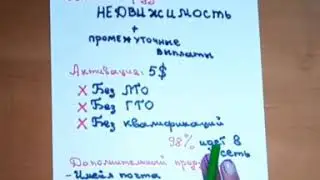 НЕДВИЖИМОСТЬ
+
промежуточные
выплаты
Активация: 5$
X Без ЛТО
X Без ГТО
X Без квалификаций
98% идёт в
сеть
Дополнительный
- Имейл почта